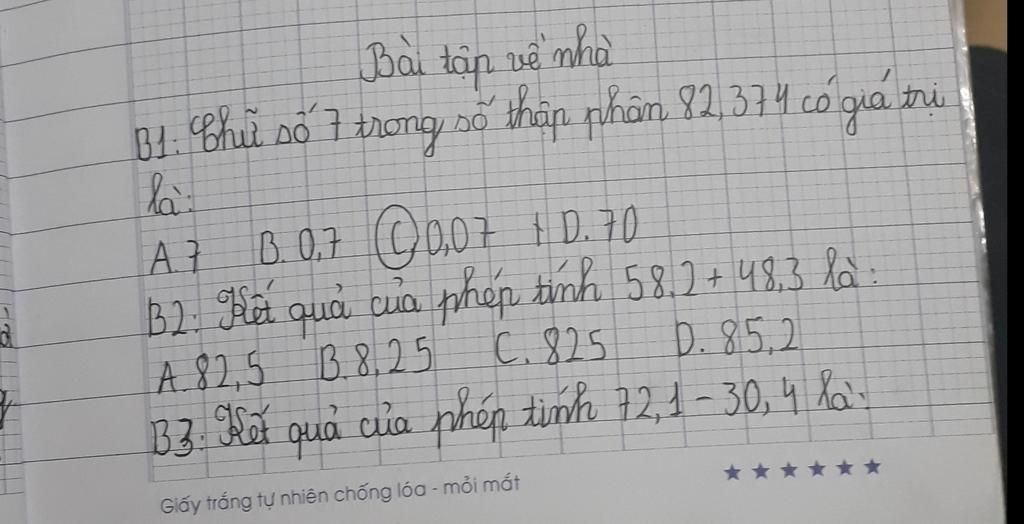 Bài tập về nhà
B1: Chữ số 7 trong số thập phân 82,374 có giá trị
là:
A.7 B. 0,7 C 0,07 + D. 70
B2: Kết quả của phép tính 58,2 + 48,3 là:
A.82,5 B.8,25 C. 825 D. 85,2
B3: Kết quả của phép tính 72,1 - 30,4 là:
Giấy trắng tự nhiên chống lóa - mỏi mắt